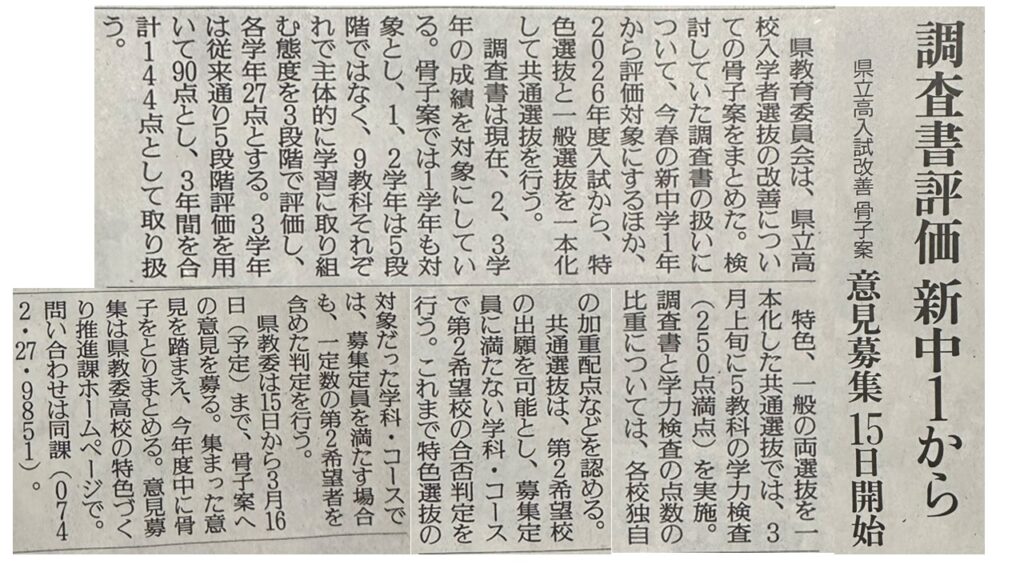 調査書評価 新中1から
県立高入試改善 骨子案 意見募集 15日開始
県教育委員会は、県立高
校入学者選抜の改善につい
ての骨子案をまとめた。検
討していた調査書の扱いに
ついて、今春の新中学1年
から評価対象にするほか、
2026年度入試から、特
色選抜と一般選抜を一本化
して共通選抜を行う。
調査書は現在、2、3学
年の成績を対象にしてい
る。骨子案では1学年も対
象とし、1、2学年は5段
階ではなく、9教科それぞ
れで主体的に学習に取り組
む態度を3段階で評価し、
各学年27点とする。3学年
は従来通り5段階評価を用
いて90点とし、3年間を合
計144点として取り扱
う。
特色、一般の両選抜を一
本化した共通選抜では、3
月上旬に5教科の学力検査
(250点満点)を実施。
調査書と学力検査の点数の
比重については、各校独自
の加重配点などを認める。
共通選抜は、第2希望校
の出願を可能とし、募集定
員に満たない学科・コース
で第2希望校の合否判定を
行う。これまで特色選抜の
対象だった学科・コースで
は、募集定員を満たす場合
も、一定数の第2希望者を
含めた判定を行う。
県教委は15日から3月16
日(予定)まで、骨子案へ
の意見を募る。集まった意
見を踏まえ、今年度中に骨
子をとりまとめる。意見募
集は県教委高校の特色づく
り推進課ホームページで。
問い合わせは同課(074
2・27・9851)。